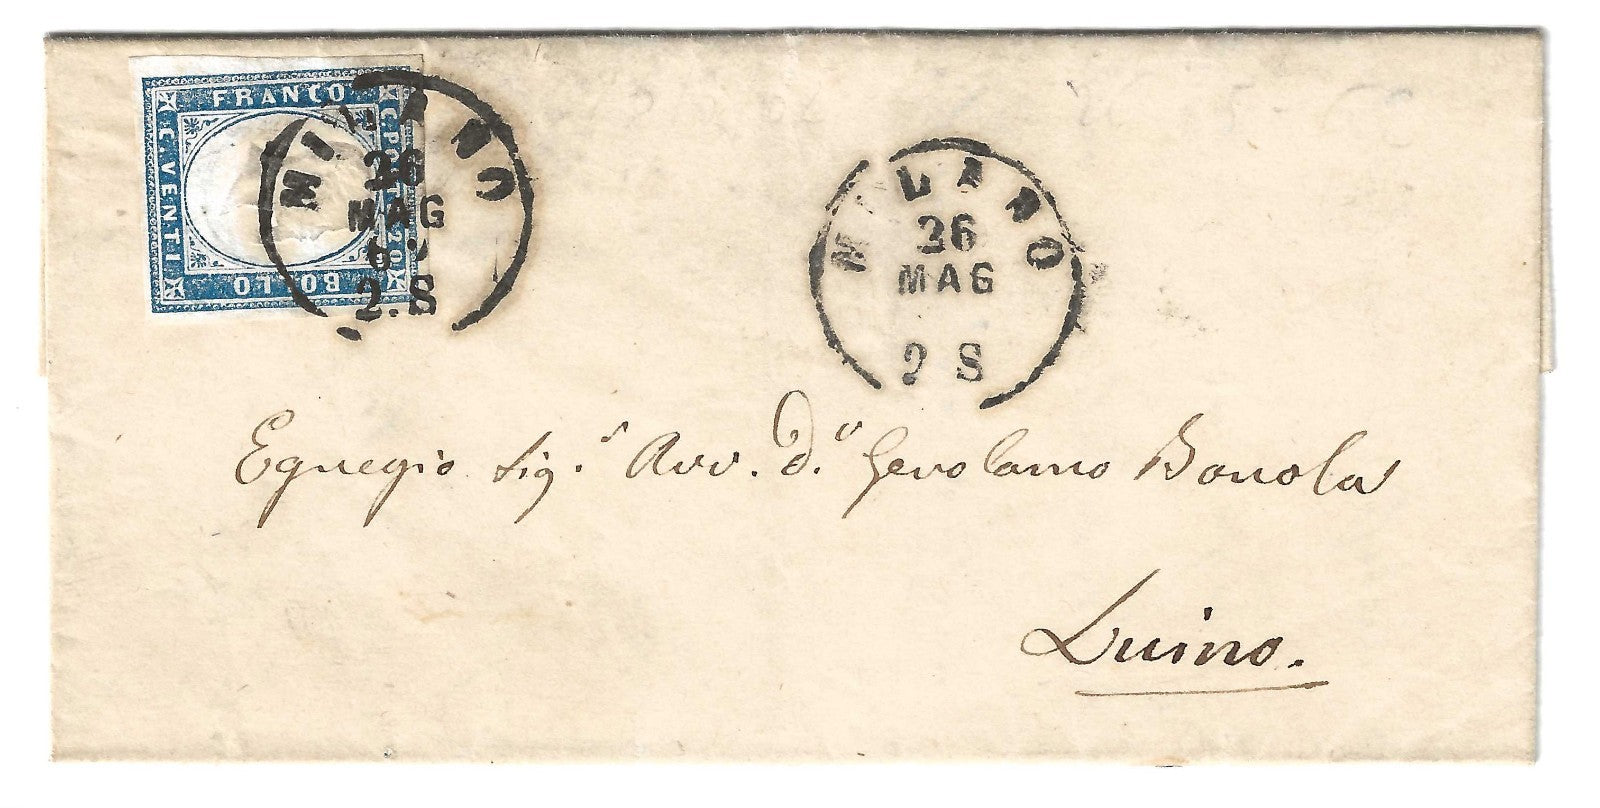 FRANCO
C. POSTE 20
C. VENTI
BOLLO
MILANO
26
MAG
62
2.S
MILANO
26
MAG
2 S
Egregio Sig.r Avv. D.r Gerolamo Bonola
Luino.